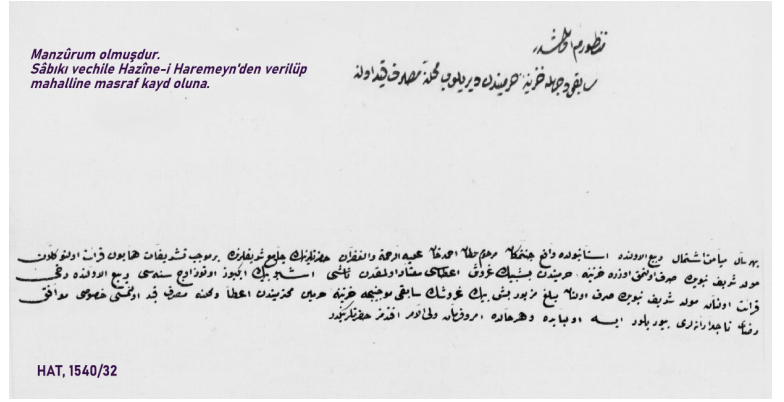 Manzûrum olmuşdur.
Sâbıkı vechile Hazîne-i Haremeyn'den verilüp
mahalline masraf kayd oluna.
منظورم اولمشدر
سابقى وجهله خزينۀ حرميندن ويريلوب محلنه مصرف قيد اولنه
ميامن اشتمال ربيع الاولنده استانبولده واقع جنتمكان مرحوم سلطان احمد خان عليه الرحمة والغفران حضرتلرينك جامع شريفلرنده بر موجب تشريفات همايون قرائت اولنو كلان
مولد شريف نبوى صرف اولنمق اوزره خزينۀ حرميندن بشبيك غروش اعطاسى معتاد اولمقدن ناشى اشبو بيك ايكيوز اوتوز اوچ سنه سى ربيع الاولنده دخى
قرائت اولنان مولد شريف نبوى صرف اولنان مبلغ مزبور بش بيك غروشك سابقى موجبنجه خزينۀ حرمين محترميندن اعطا و محلنه مصرف قيد اولنمسى خصوصى موافق
رضاى تاجدارانه لرى بيوريلور ايسه اولبابده وهر حالده امر وفرمان ولى الامر افندمز حضرتلرينكدر
HAT, 1540/32